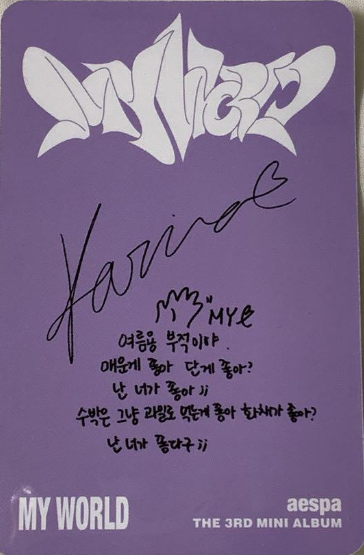 MY WORLD
Karina
MY
여름용 부적이야.
매운게 좋아 단게 좋아?
난 너가 좋아 ;;
수박은 그냥 과일로 먹는게 좋아 화채가 좋아?
난 너가 좋다구 ;;
MY WORLD
aespa
THE 3RD MINI ALBUM